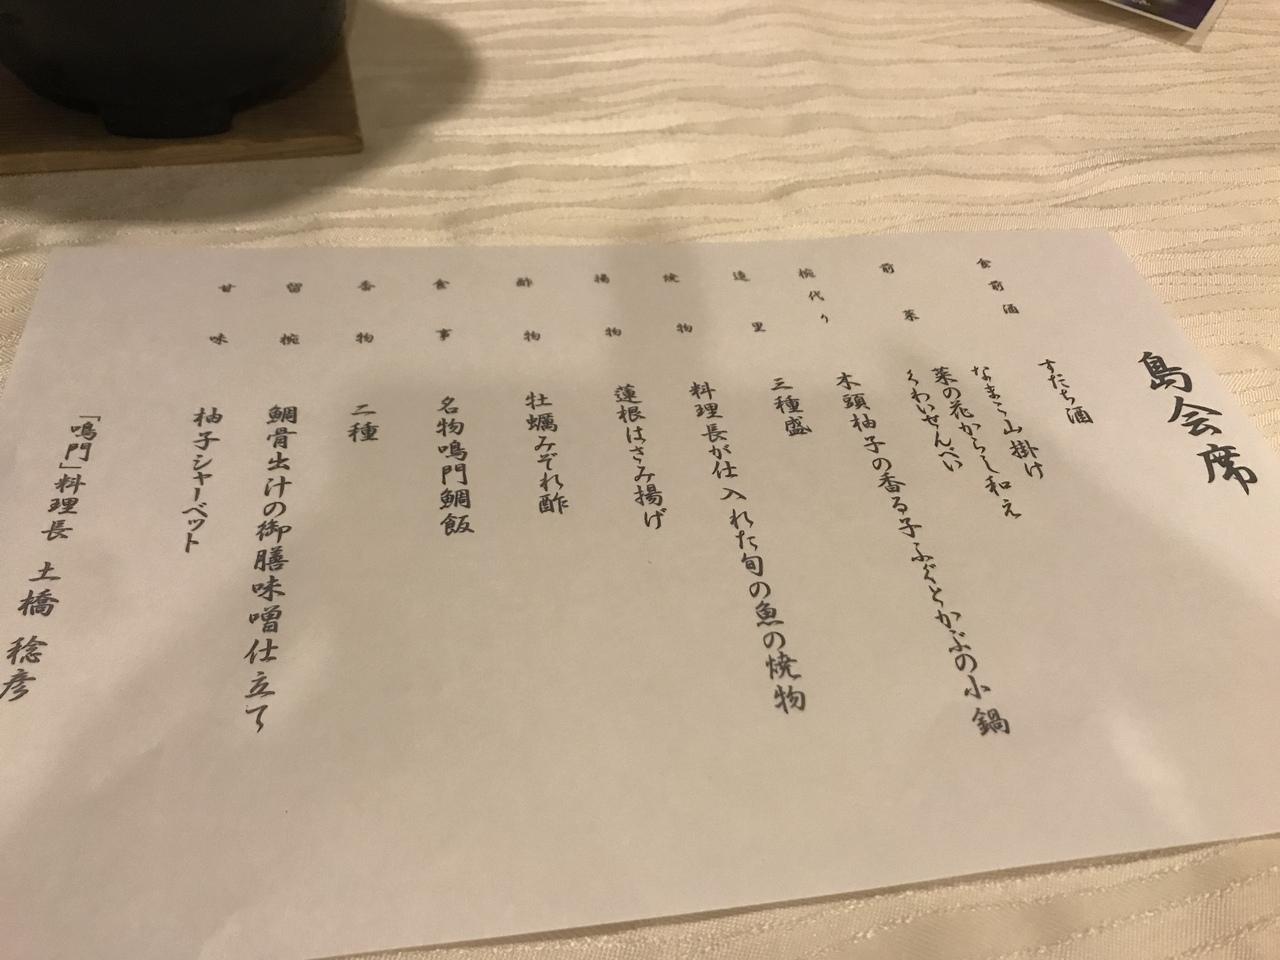 島会席
食前酒 すだち酒
前菜 なまこ山掛け
菜の花からし和え
くわいせんべい
椀代り 木頭柚子の香る子ふぐとかぶの小鍋
造里 三種盛
焼物 料理長が仕入れた旬の魚の焼物
揚物 蓮根はさみ揚げ
酢物 牡蠣みぞれ酢
食事 名物鳴門鯛飯
香物 二種
留椀 鯛骨出汁の御膳味噌仕立て
甘味 柚子シャーベット
「鳴門」料理長 土橋 稔彦